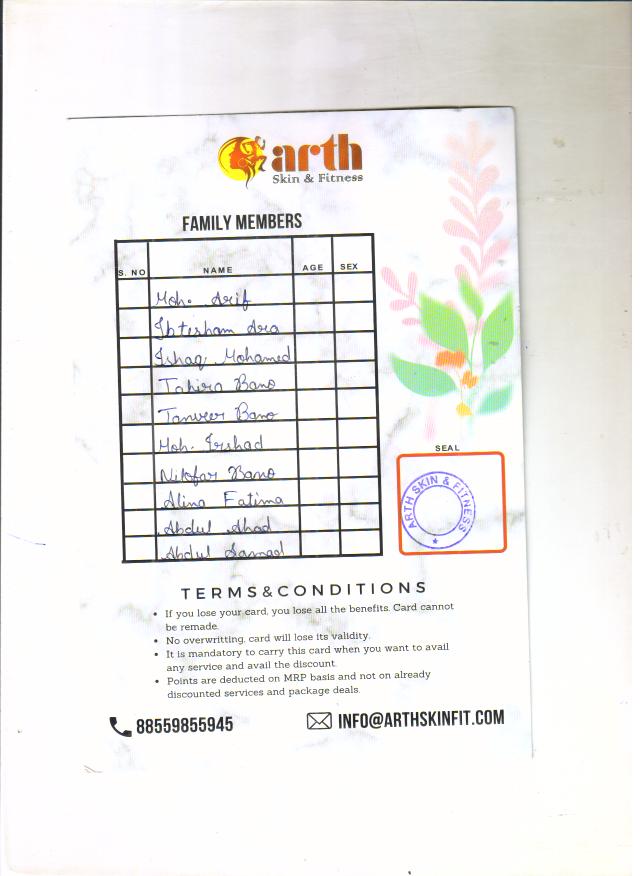 arth
Skin & Fitness
FAMILY MEMBERS
S. NO NAME AGE SEX
Moh. Arif
Ihtesham Ara
Ishaq Mohamed
Tahira Bano
Tanveer Bano
Moh. Irshad
Nilofar Bano
Alina Fatima
Abdul Ahad
Abdul Samad
SEAL
ARTH SKIN & FITNESS
TERMS&CONDITIONS
• If you lose your card, you lose all the benefits. Card cannot
be remade.
• No overwritting, card will lose its validity.
• It is mandatory to carry this card when you want to avail
any service and avail the discount.
• Points are deducted on MRP basis and not on already
discounted services and package deals.
88559855945 INFO@ARTHSKINFIT.COM